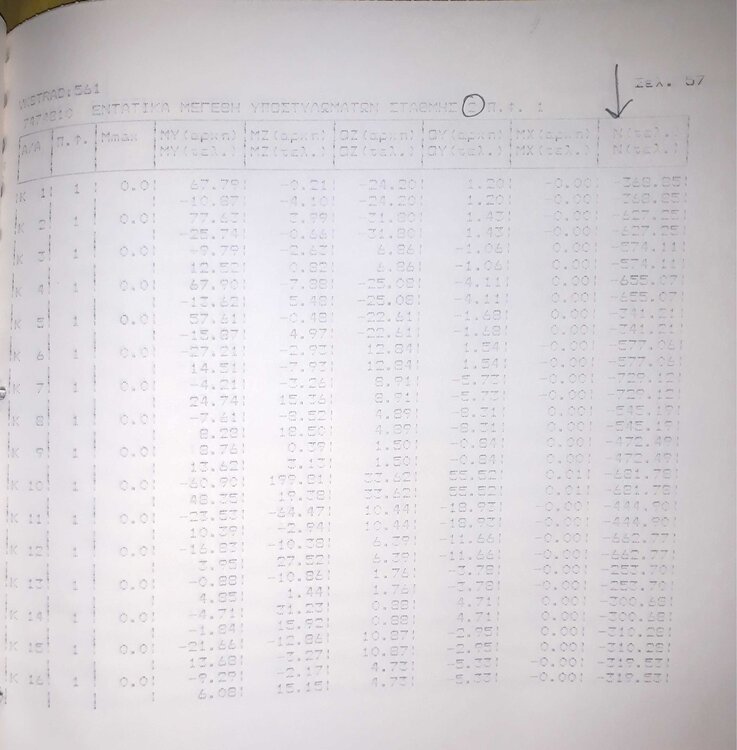 Σελ. 57
VKSTRAD:561
ΕΝΤΑΤΙΚΑ ΜΕΓΕΘΗ ΥΠΟΣΤΥΛΩΜΑΤΩΝ ΣΤΑΘΜΗΣ Π.Φ. 1
Α/Α Π.Φ. Mmax MY(αρχη) MZ(αρχη) QZ(αρχη) QY(αρχη) MX(αρχη) N(τελ.)
MY(τελ.) MZ(τελ.) QZ(τελ.) QY(τελ.) MX(τελ.) N(τελ.)
K 1 1 0.0 67.79 -0.21 -24.20 1.20 -0.00 -368.85
-10.87 -4.10 -24.20 1.20 -0.00 -368.85
K 2 1 0.0 77.63 3.99 -31.80 1.43 -0.00 -627.25
-25.74 -0.66 -31.80 1.43 -0.00 -627.25
K 3 1 0.0 -9.79 -2.63 6.86 -1.06 0.00 -574.11
12.52 0.82 6.86 -1.06 0.00 -574.11
K 4 1 0.0 67.90 -7.88 -25.08 -4.11 0.00 -655.07
-13.62 5.48 -25.08 -4.11 0.00 -655.07
K 5 1 0.0 57.61 -0.48 -22.61 -1.68 0.00 -341.21
-15.87 4.97 -22.61 -1.68 0.00 -341.21
K 6 1 0.0 -27.21 -2.93 12.84 1.54 -0.00 -577.06
14.51 -7.93 12.84 1.54 -0.00 -577.06
K 7 1 0.0 -4.21 -3.26 8.91 -5.73 -0.00
24.74 15.36 8.91 -5.73 -0.00
K 8 1 0.0 -7.61 -8.52 4.89 -8.31 0.00 -545.19
8.28 18.50 4.89 -8.31 0.00 -545.19
K 9 1 0.0 8.76 0.39 1.50 -0.84 0.00 -472.49
13.62 3.13 1.50 -0.84 0.00 -472.49
K 10 1 0.0 -60.90 199.81 33.62 55.52 0.01 -681.78
48.35 19.38 33.62 55.52 0.01 -681.78
K 11 1 0.0 -23.53 -64.47 10.44 -18.93 -0.00 -444.90
10.39 -2.94 10.44 -18.93 -0.00 -444.90
K 12 1 0.0 -16.83 -10.38 6.39 -11.66 -0.00 -662.77
3.95 27.52 6.39 -11.66 -0.00 -662.77
K 13 1 0.0 -0.88 -10.86 1.76 -3.78 0.00 -253.70
4.85 1.44 1.76 -3.78 0.00 -253.70
K 14 1 0.0 -4.71 31.23 0.88 4.71 0.00 -300.68
-1.84 15.92 0.88 4.71 0.00 -300.68
K 15 1 0.0 -21.66 -12.86 10.87 -2.95 0.00 -310.28
13.68 -3.27 10.87 -2.95 0.00 -310.28
K 16 1 0.0 -9.29 -2.17 4.73 -5.33 -0.00 -319.53
6.08 15.15 4.73 -5.33 -0.00 -319.53